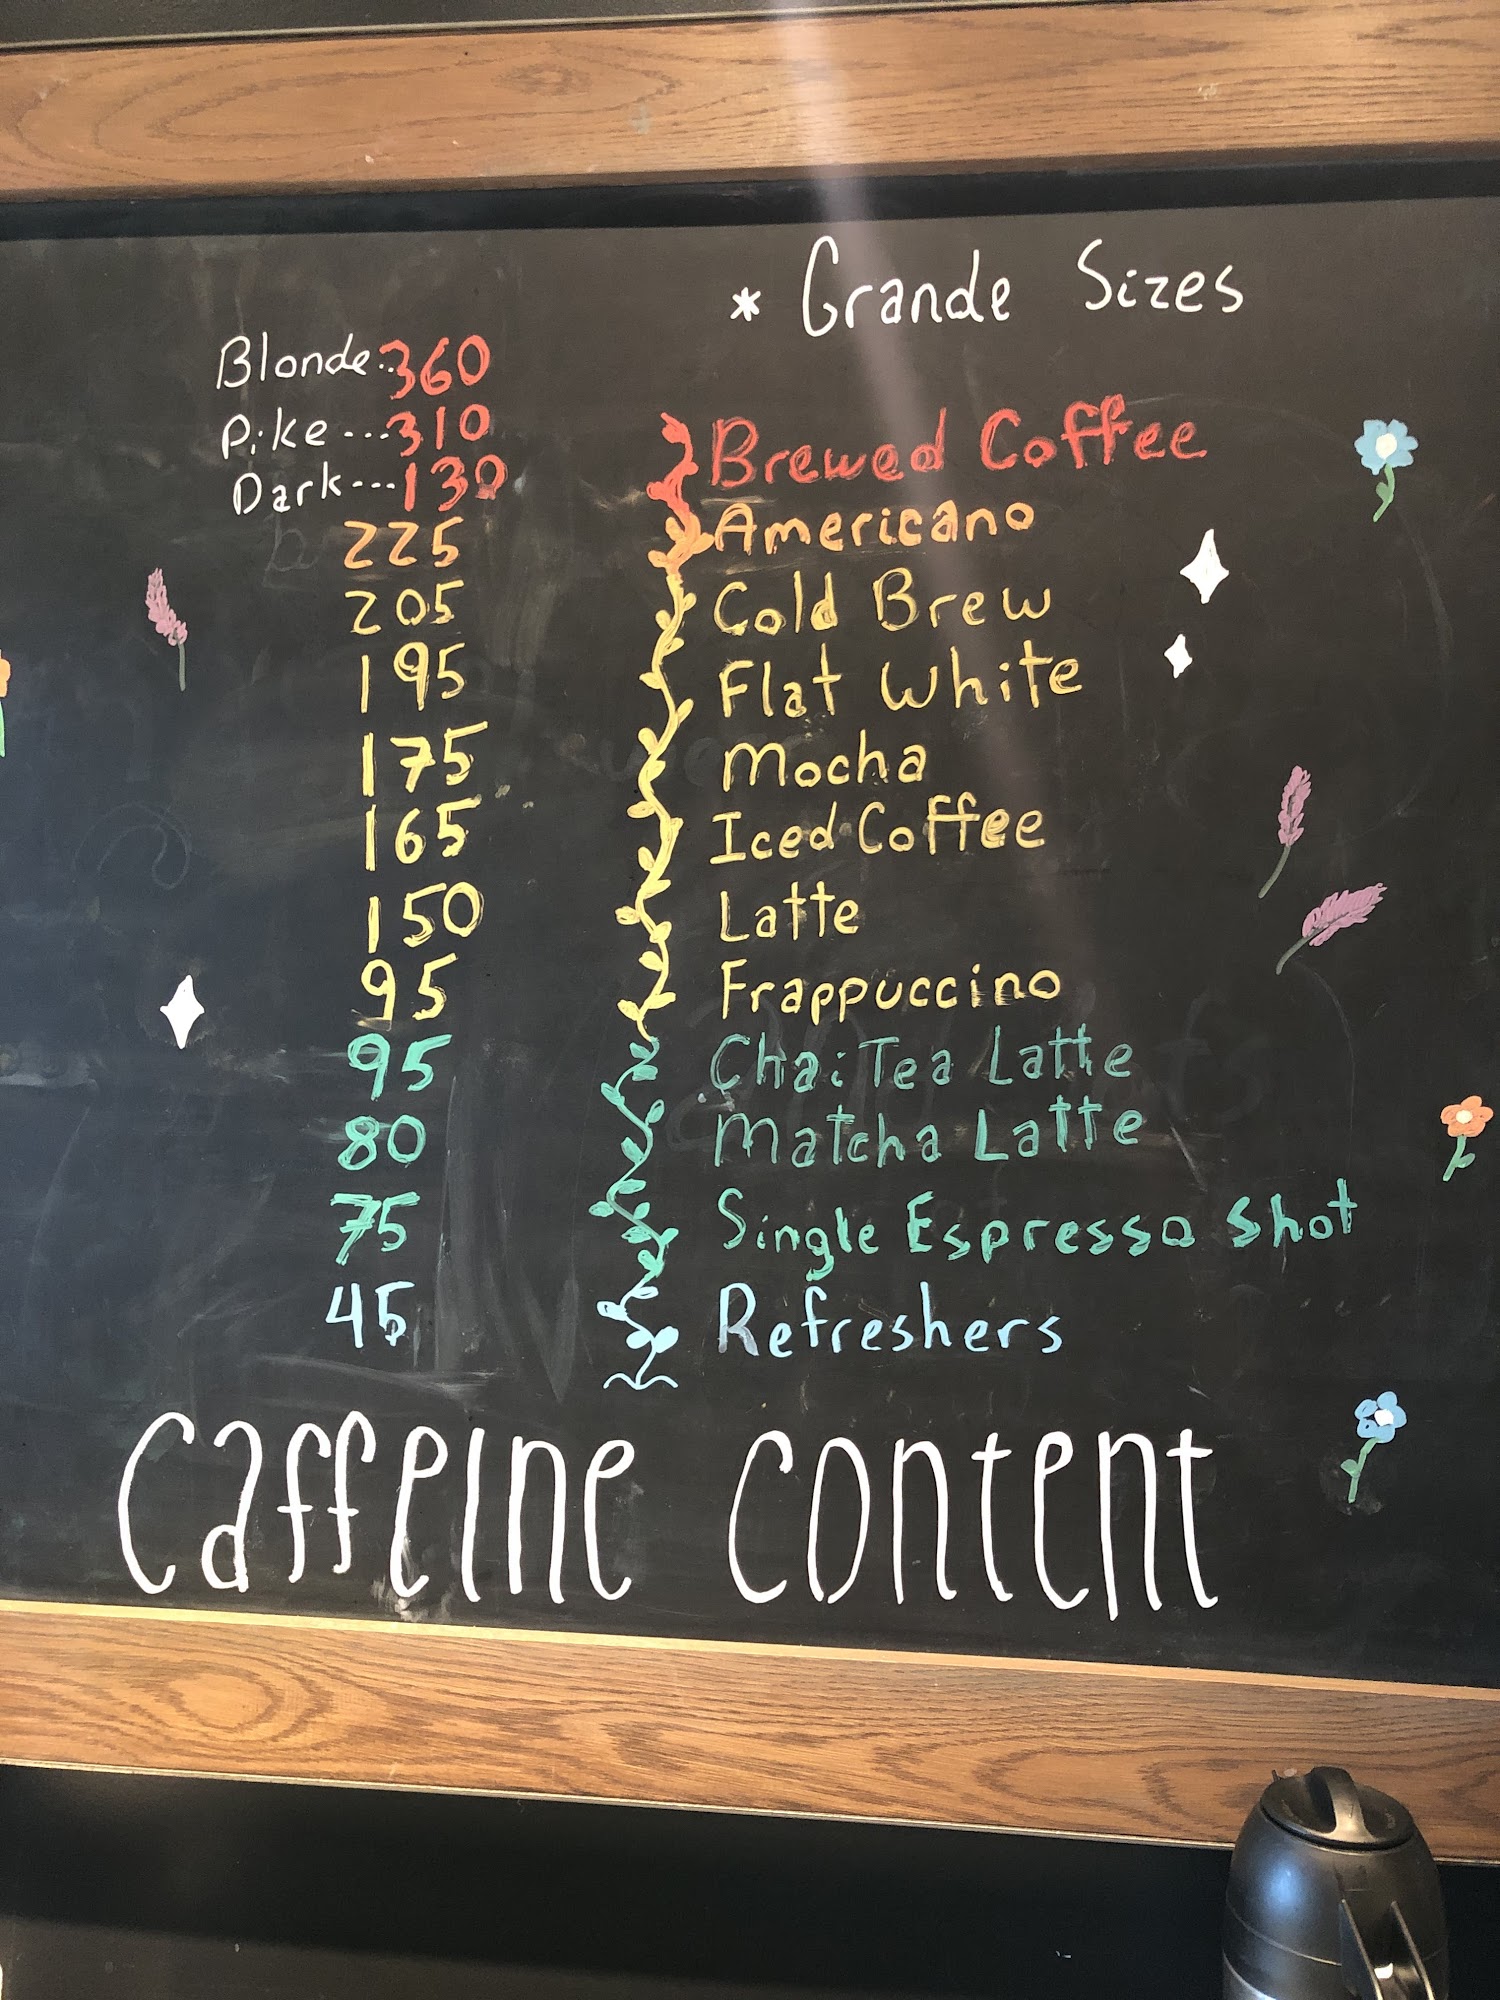 * Grande Sizes
Blonde..360
Pike ---310
Dark---130
Brewed Coffee
225 Americano
205 Cold Brew
195 Flat White
175 Mocha
165 Iced Coffee
150 Latte
95 Frappuccino
95 Chai Tea Latte
80 Matcha Latte
75 Single Espresso Shot
45 Refreshers
Caffeine content